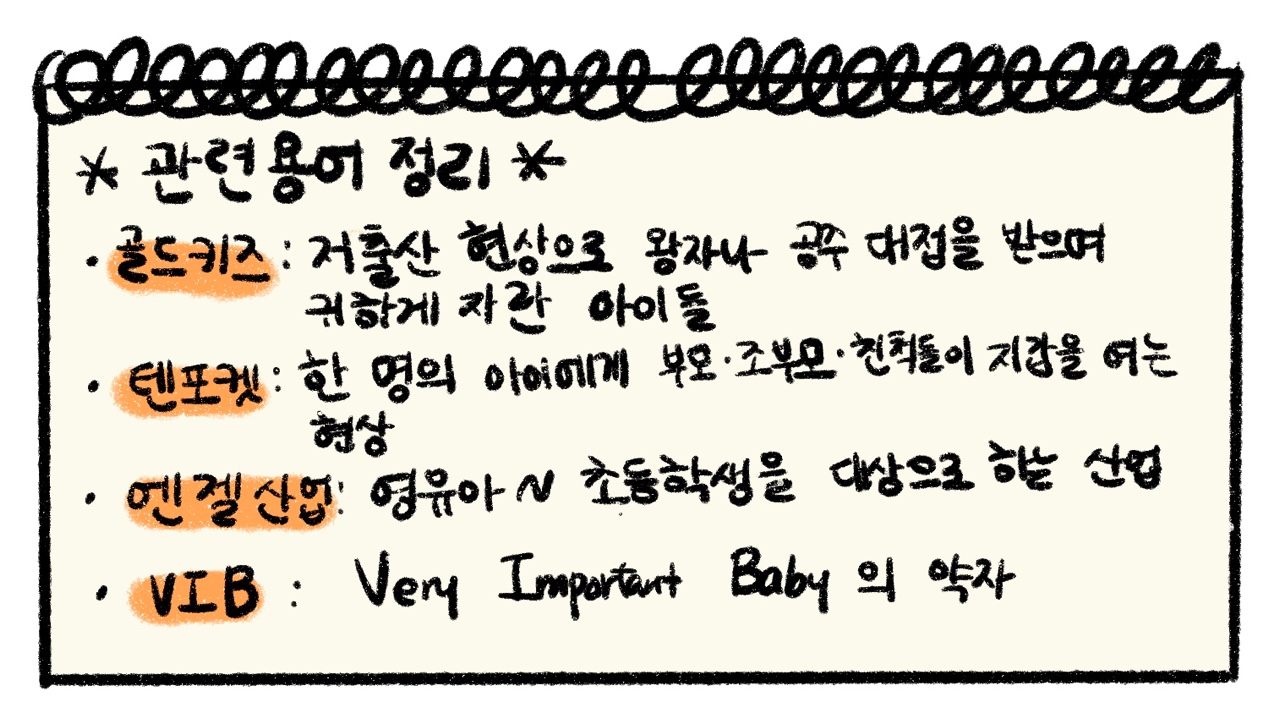 * 관련용어 정리 *
· 골드키즈 : 저출산 현상으로 왕자나 공주 대접을 받으며
귀하게 자란 아이들
· 텐포켓 : 한 명의 아이에게 부모·조부모·친척들이 지갑을 여는
현상
· 엔젤산업 : 영유아 ~ 초등학생을 대상으로 하는 산업
· VIB : Very Important Baby 의 약자